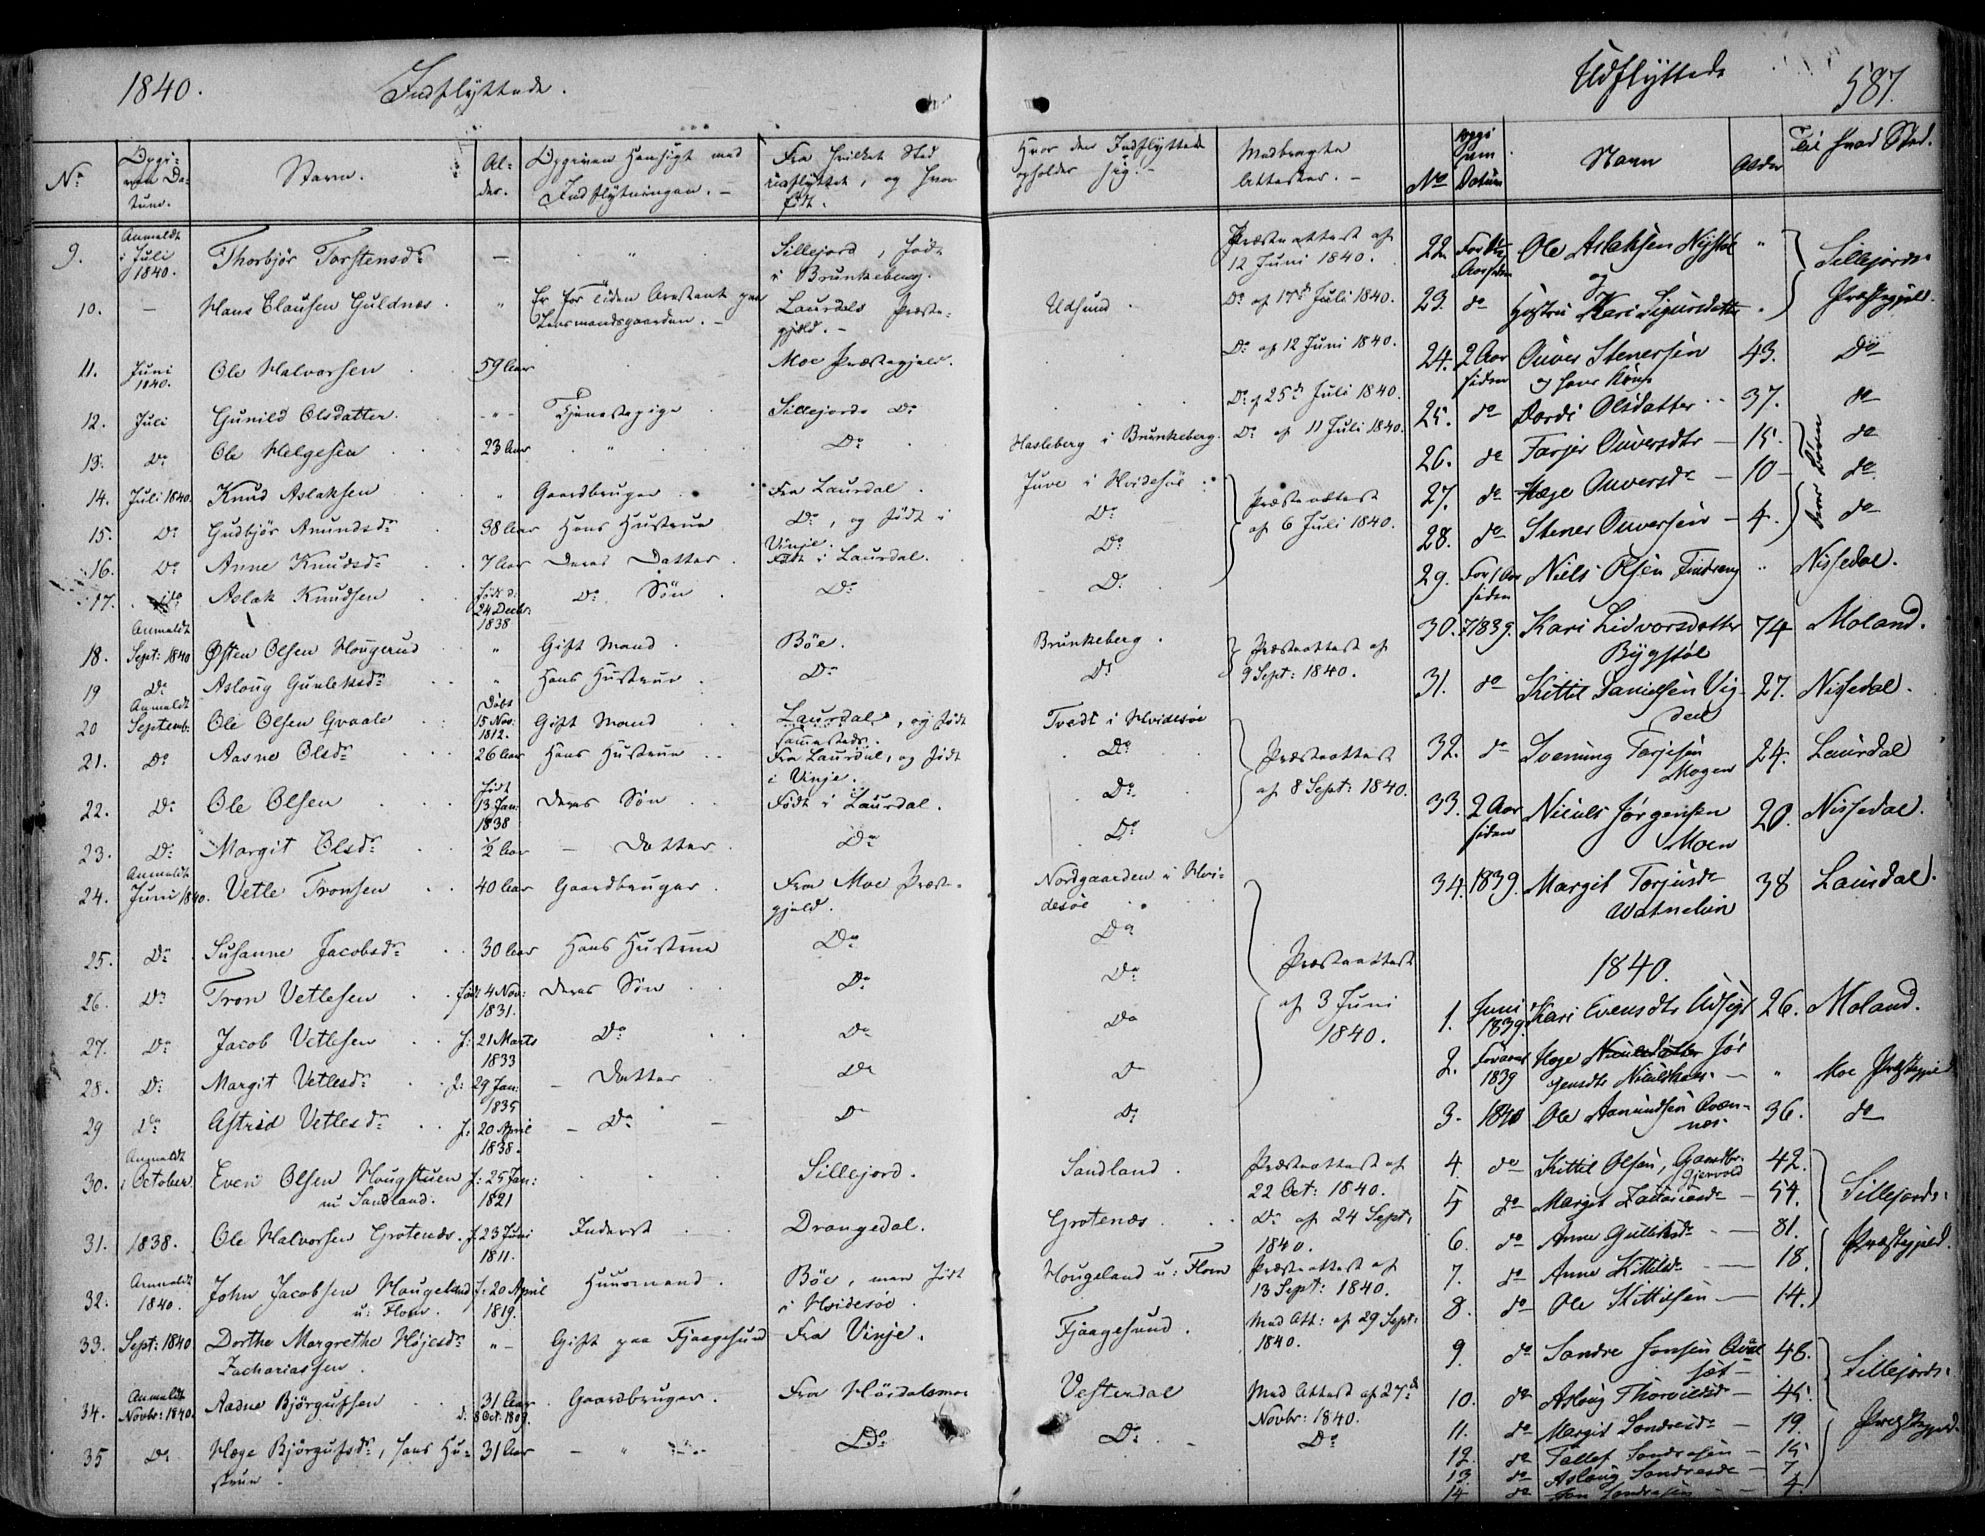 1840. Indflyttede. Udflyttede 587.
No Navn. Al-der. Opgiven Hensigt med Indflytningen. Fra hvilket Sted indflyttet, og hvor født. Hvor den Indflyttede opholder sig. Medbragte Attester. No Datum Navn Alder Til hvad Sted.
9. Anmeldt i Juli 1840. Thorbjør Torstensdr — " Sillejord, født i Brunkeberg. Præsteattest af 12 Juni 1840.
10. — Hans Clausen Guldnæs " Er for Tiden Arrestant paa Lensmandsgaarden. Laurdals Præstegjeld. Udsund Do af 17de Juli 1840.
11. Juni 1840. Ole Halvorsen 59 Aar Moe Præstegjeld. Do af 12 Juni 1840.
12. Juli Gunild Olsdatter -"- Tjenestepige Sillejords Do Do af 25de Juli 1840.
13. Do Ole Helgesen 23 Aar " Do Hasleberg i Brunkeberg. Do af 11 Juli 1840.
14. Juli 1840. Knud Aslaksen " Gaardbruger Fra Laurdal. Juve i Hvidesöe Præsteattest af 6 Juli 1840.
15. Do Gudbjør Amundsdr 38 Aar Hans Hustrue Do, og født i Vinje. Do
16. Do Anne Knudsdr 7 Aar Deres Datter Født i Laurdal. Do
17. Do Aslak Knudsen født d: 24 Decbr: 1838 Do Søn Do Do
18. Anmeldt Sept: 1840 Østen Olsen Hougerud " Gift Mand Bøe. Brunkeberg. Præsteattest af 9 Sept: 1840.
19 Do Aslaug Gunleksdr " Hans Hustrue Do Do
20 Anmeldt Septemb. Ole Olsen Qvaale Døbt 15 Nov: 1812. Gift Mand Laurdal, og født sammesteds. Tvedt i Hvidesöe Præsteattest af 8 Sept: 1840.
21. Do Aasne Olsdr 26 Aar Hans Hustrue Fra Laurdal, og født i Vinje. Do
22. Do Ole Olsen født 13 Jan: 1838 Deres Søn Født i Laurdal. Do
23. Do Margit Olsdr 1/2 Aar — Datter Do Do
24. Anmeldt Juni 1840. Vetle Tronsen 40 Aar Gaardbruger Fra Moe Præstgjeld. Nordgaarden i Hvidesöe Præsteattest af 3 Juni 1840.
25. Do Susanne Jacobsdr 30 Aar Hans Hustrue Do Do
26. Do Tron Vetlesen født 4 Nov: 1831. Deres Søn Do Do
27. Do Jacob Vetlesen f: 21 Marts 1833 Do Do Do
28. Do Margit Vetlesdr f: 29 Jan: 1835 — Datter Do Do
29 Do Astrid Vetlesdr f: 20 April 1838. — Do — Do Do
30. Anmeldt i October Even Olsen Hougstuen nu Sandland. f: 25 Jan: 1821 Sillejord. Sandland. Præsteattest af 22 Oct: 1840.
31. 1838. Ole Halvorsen Grotenæs f. 23 Juni 1811. Inderst Drangedal. Grotenæs. Do af 24 Sept: 1840.
32. Anmeldt 1840. John Jacobsen Haugeland u: Flom. f: 20 April 1819. Huusmand. Bøe, men født i Hvidesöe. Hougeland u: Flom Præsteattest af 13 Sept: 1840.
33. Sept: 1840 Dorthe Margrethe Højesdr Zachariassen. "— Gift paa Fjaagesund Fra Vinje. Fjaagesund. Med Att: af 29 Sept: 1840.
34. Anmeldt Novbr: 1840. Aadne Bjørgufsen 31 Aar d. 8 Oct: 1809. Gaardbruger. Fra Höidalsmoe Vesterdal Med Attest af 27de Novbr: 1840.
35 Do Hæge Bjørgufsdr, hans Hustrue. 31 Aar — " Do Do Do
22. Aar siden Ole Aslaksen Nystøl og " Sillejords Præstegjeld.
23. do Hustru Kari Sigursdatter "
24. 2 Aar siden Ouver Stenersen og hans Kone 43. Do
25. do Dordi Olsdatter 37. do
26. do Tarjer Ouversdtr — 15. do
27. do Hæge Ouversdr — 10 — do
28. do Stener Ouversen — 4. do
29. For 1 Aar siden Niels Olsen " Nissedal.
30. 7/1839. Kari Lidvorsdatter Bygstøl 74 Moland.
31. do Kittil Danielsen Vigdeel 27. Nissedal.
32. do Svenung Tarjesen Mogen 24. Laurdal
33. 2 Aar siden Niculs Jørgensen Moen 20. Nissedal.
34. 1839. Margit Torjusdr 38 Laurdal.
1840.
1. Juni 1839. Kari Evensdtr 26. Moland.
2. 1839 Hæge Jørgensdtr — " Moe Præstegjeld
3. 1840 Ole Aanundsen 36. do
4 do Kittil Olsen, Gaardbr. Gjervold 42. Sillejords Præstegjeld.
5 do Margit — 54.
6. do Anne Gulliksdr — 81.
7. do Anne Kittilsdr — 18.
8. do Ole Kittilsen — 14.
9. do Sondre Jonsen 46. Sillejords Præstegjeld.
10. do Aslaug — 45.
11. do Margit Sondresdr — 19.
12. do Tallef Sondresen — 15
13. do Aslaug Sondresdr — 7
14 do Jon Sondresen — 4.